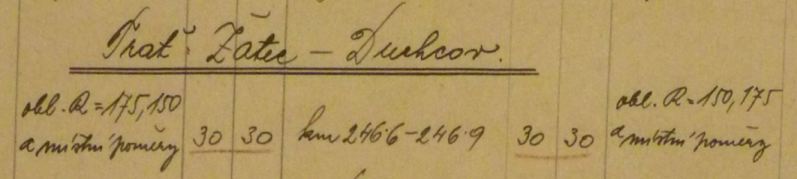 Trať Žatec – Duchcov.
obl. R = 175, 150 obl. R = 150, 175
a místní poměry 30 30 km 246·6 – 246·9 30 30 a místní poměry